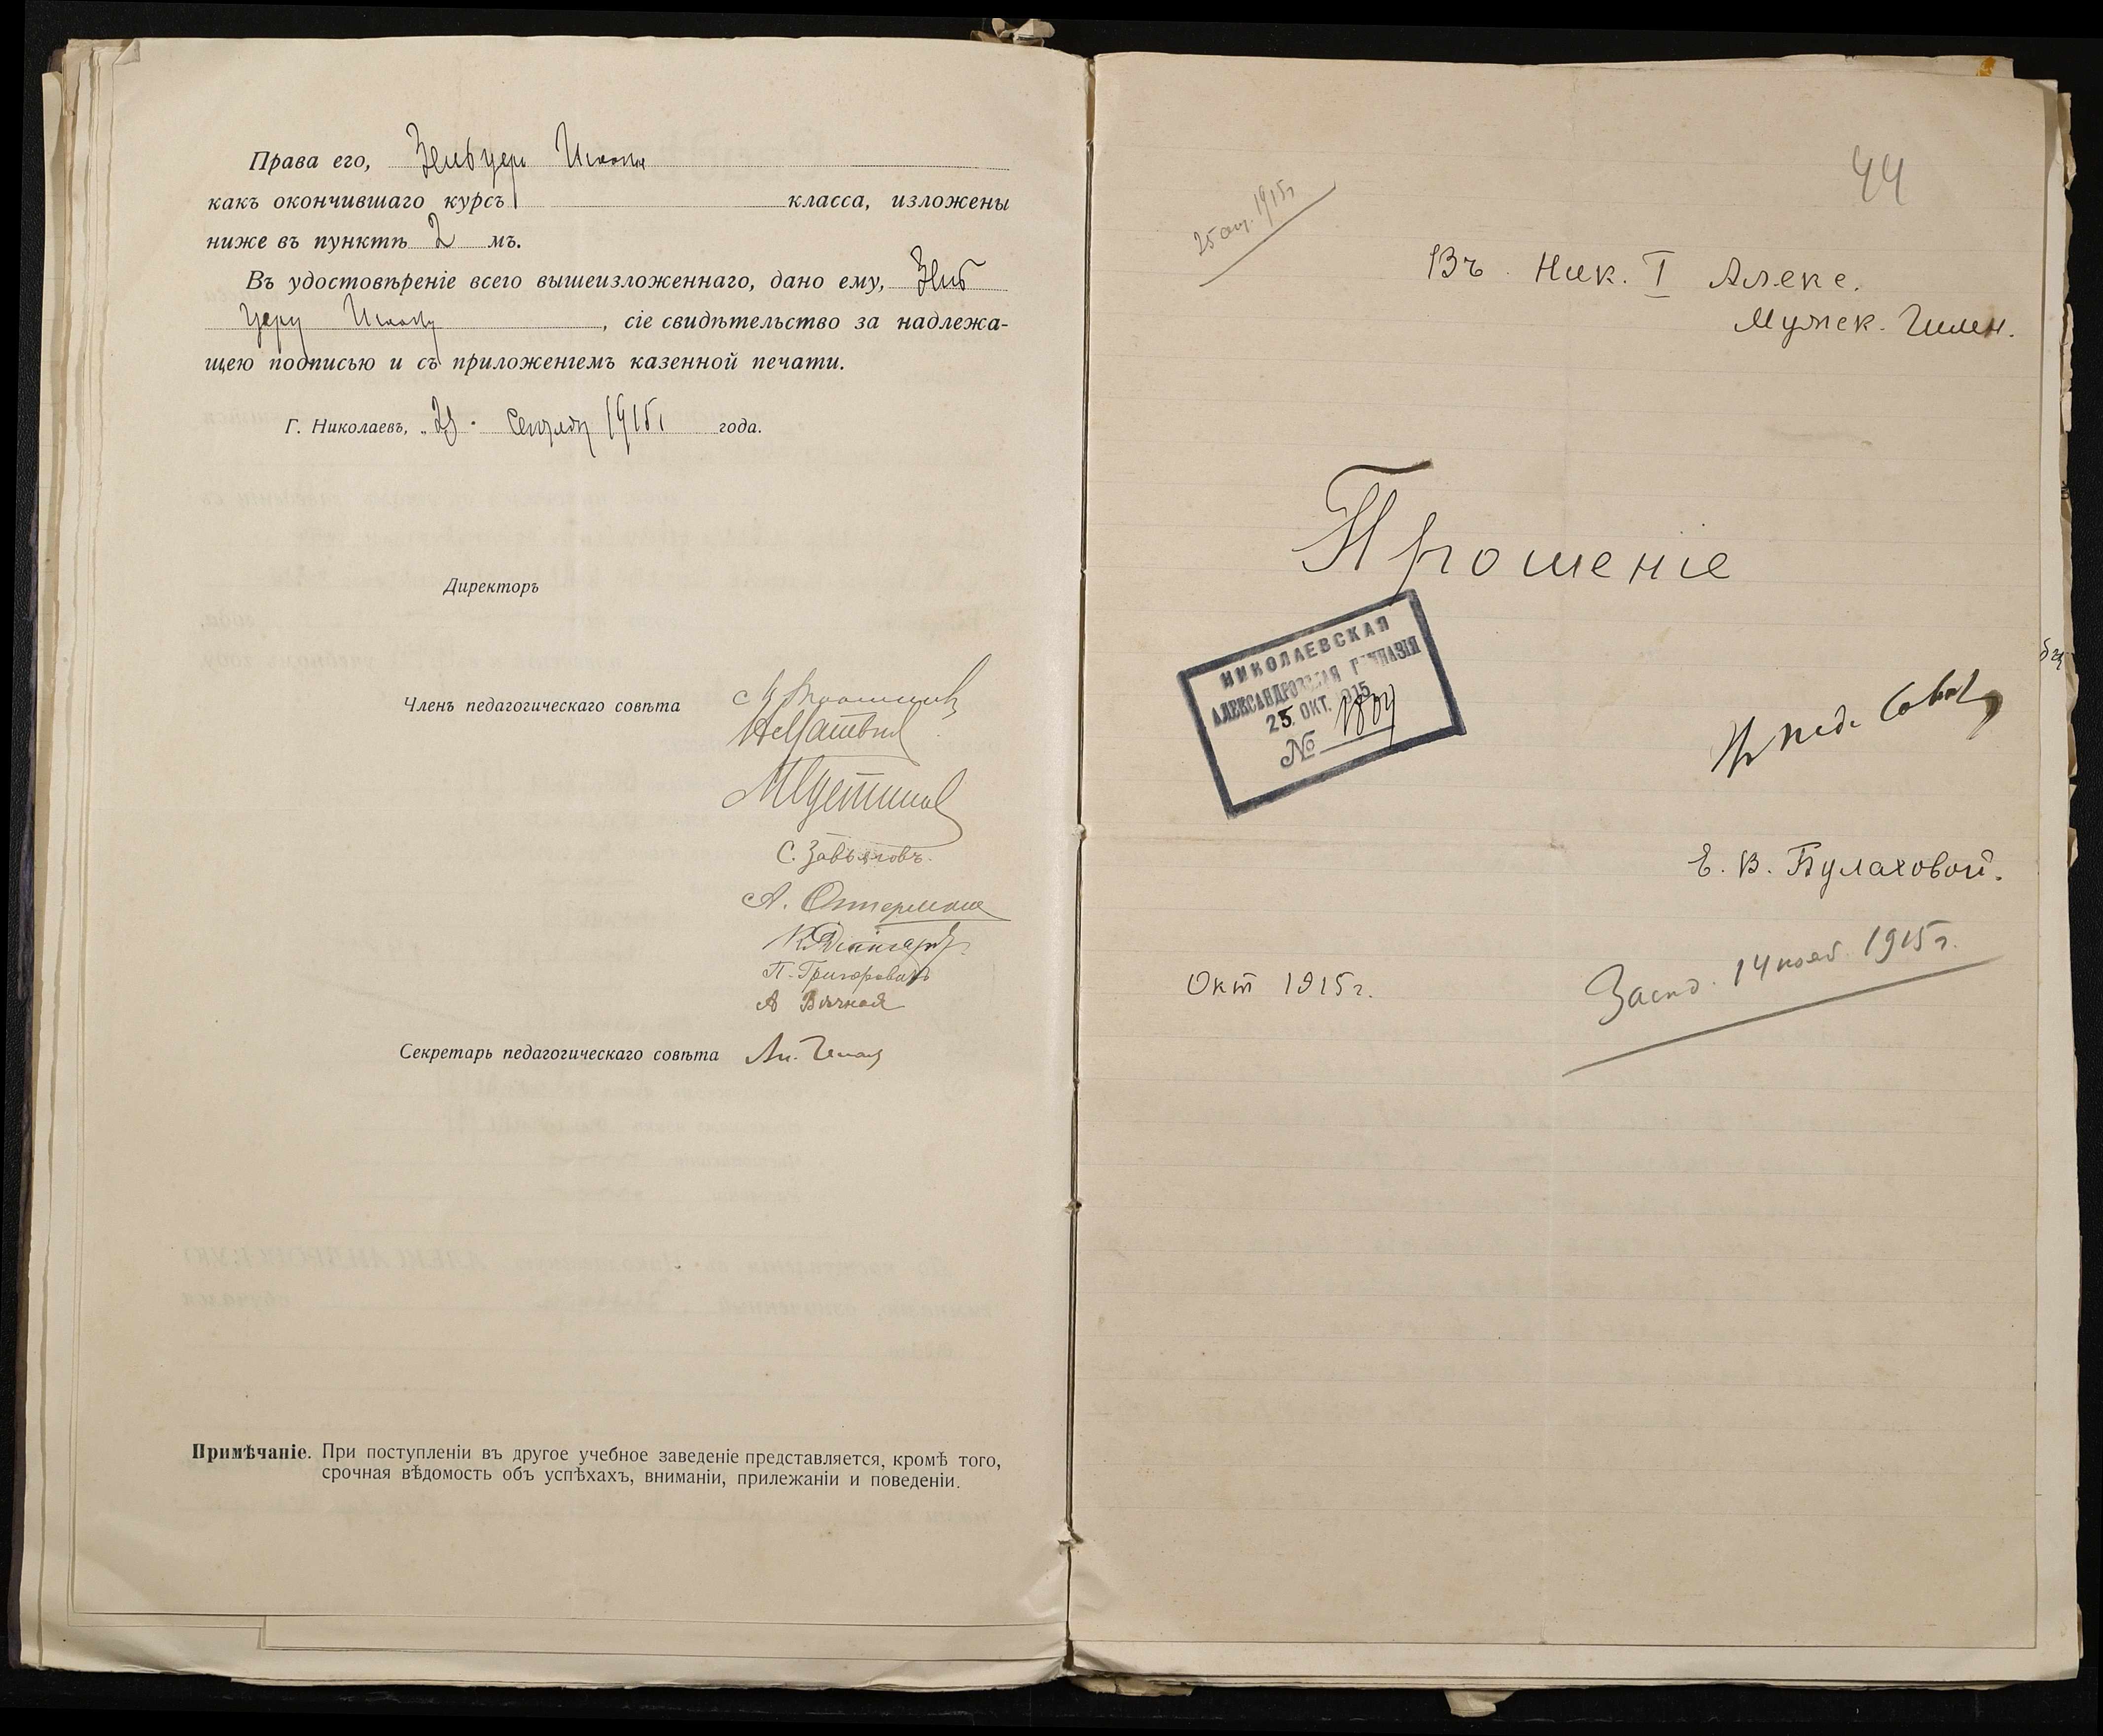 Права его, Зельцеръ Исаака
какъ окончившаго курсъ класса, изложены
ниже въ пунктѣ 2 мъ.
Въ удостовѣреніе всего вышеизложеннаго, дано ему, Зель
церу Исааку, сіе свидѣтельство за надлежа-
щею подписью и съ приложеніемъ казенной печати.
Г. Николаевъ, 1915 г. года.
Директоръ
Членъ педагогическаго совѣта
С. Завьяловъ.
А. Остерманъ
П. Григоровичъ
Секретарь педагогическаго совѣта
Примѣчаніе. При поступленіи въ другое учебное заведеніе представляется, кромѣ того,
срочная вѣдомость объ успѣхахъ, вниманіи, прилежаніи и поведеніи.
44
25 окт. 1915 г
Въ Ник. I Алекс.
Мужск. Гимн.
Прошеніе
НИКОЛАЕВСКАЯ
АЛЕКСАНДРОВСКАЯ ГИМНАЗІЯ
25 ОКТ. 1915
№
Въ пед. Совѣтъ
Е. В. Булаховой.
Окт 1915 г.
Засѣд. 14 нояб. 1915 г.